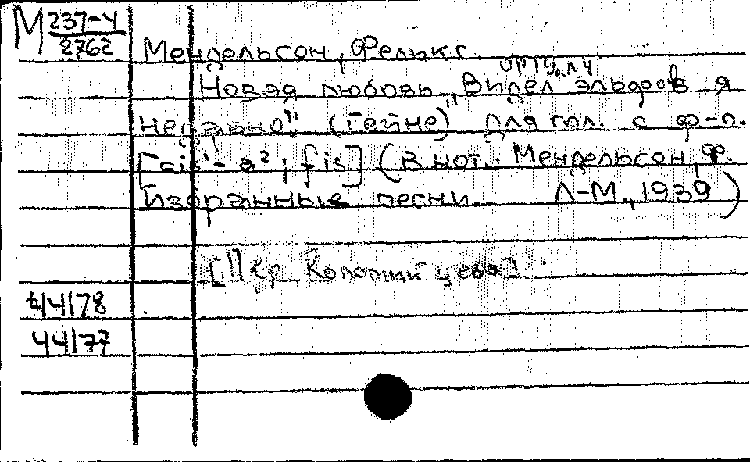 М 237-4
2762
Мендельсон, Феликс
Новая любовь „Видел эльфов я
недавно" (Гейне) Для гол. с ф-п.
[cis¹-a²; fis] (В нот. Мендельсон, Ф.
Избранные песни. Л-М, 1939)
[Пер.
44178
44177